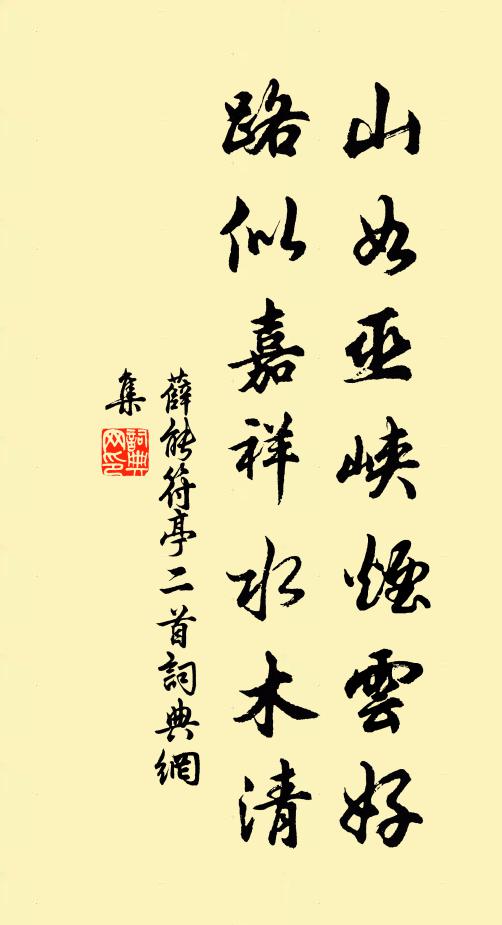 山如巫峽煙雲好
路似嘉祥水木清
薛能符亭二首詞典網
集
詞典
网印